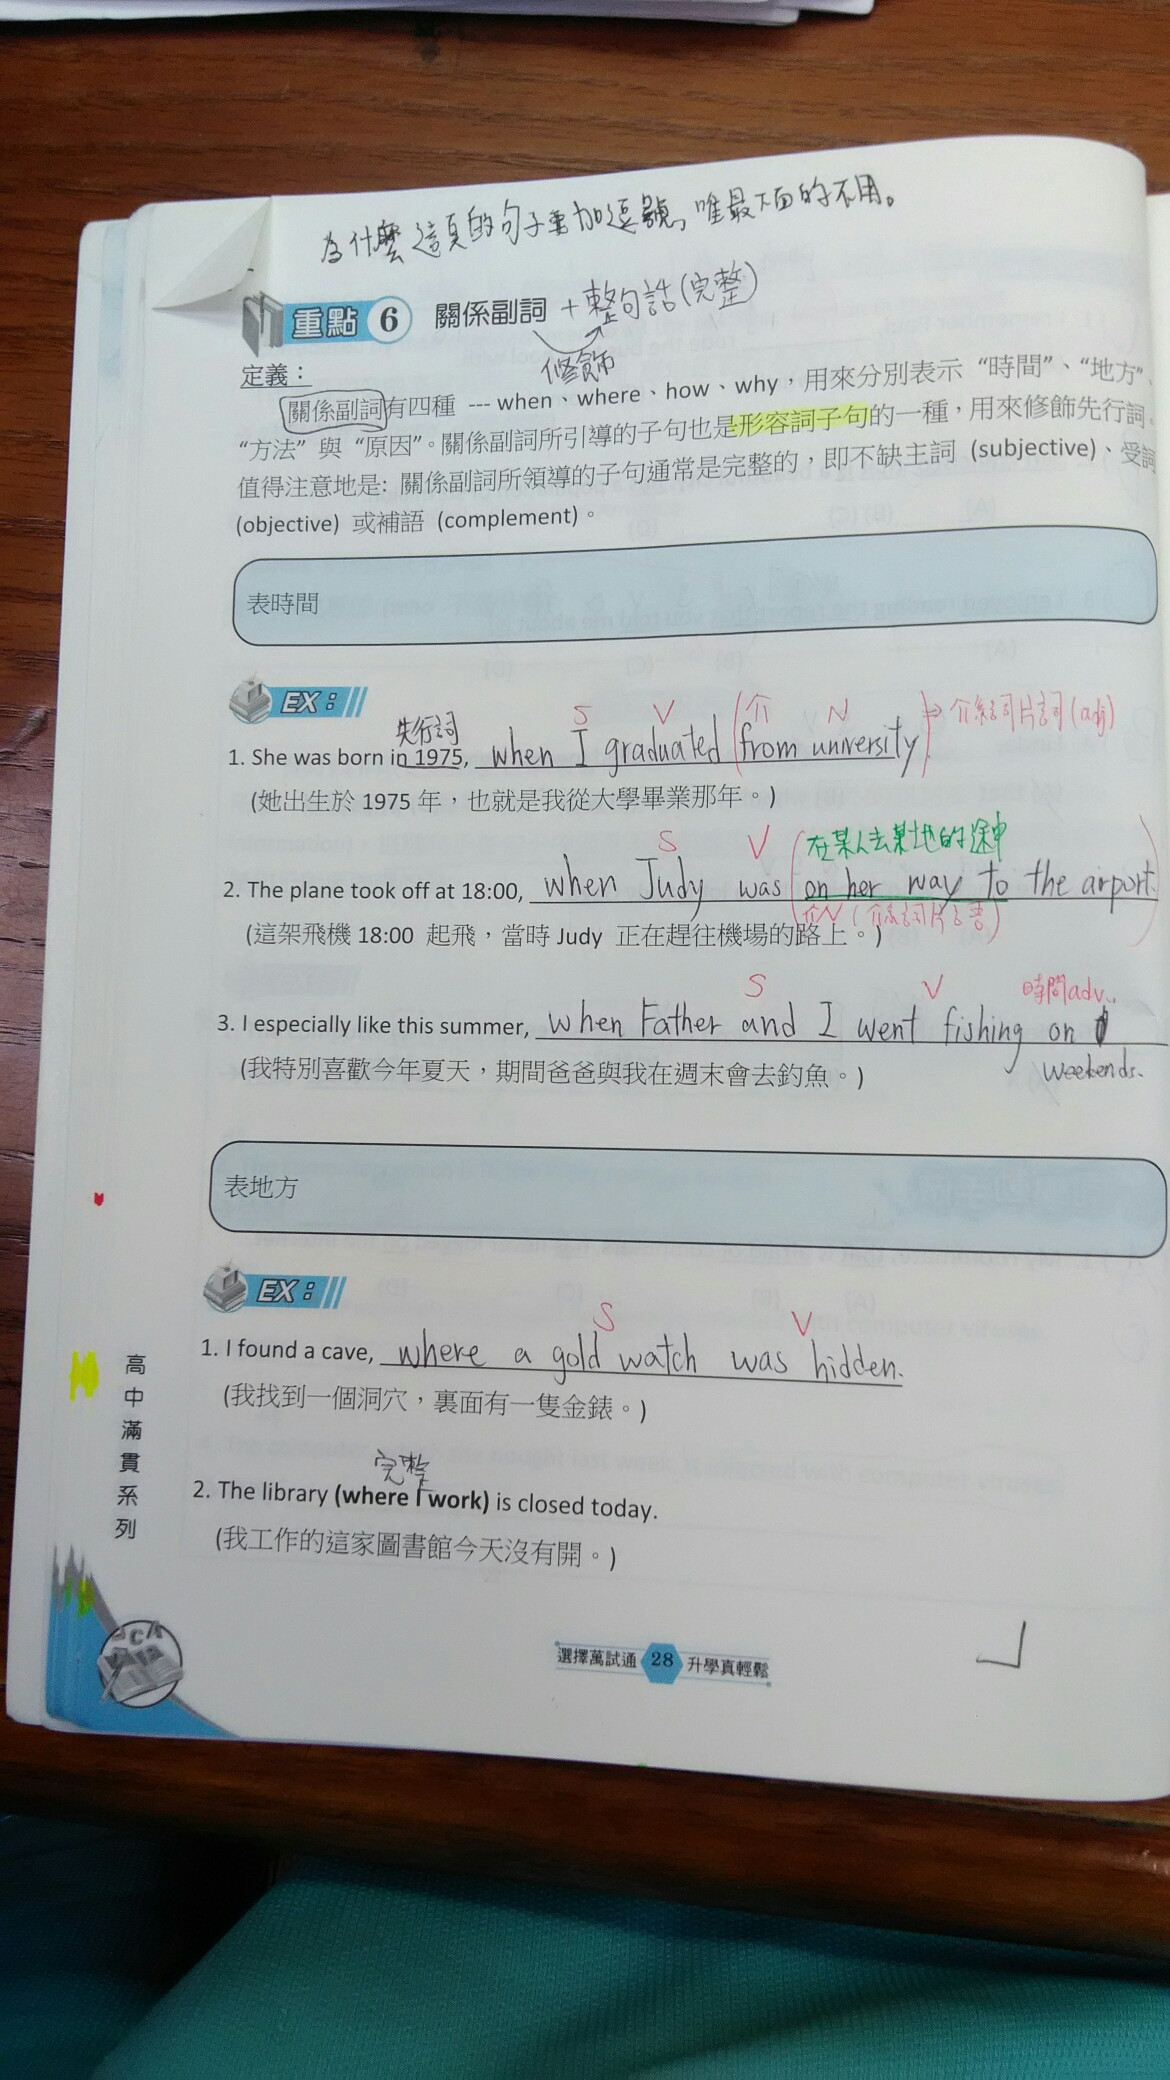 為什麼這頁的句子要加逗號,唯最下面的不用。
重點 6 關係副詞 +整句話(完整)
修飾
定義:
關係副詞有四種 --- when、where、how、why,用來分別表示 “時間”、“地方”、
“方法” 與 “原因”。關係副詞所引導的子句也是形容詞子句的一種,用來修飾先行詞。
值得注意地是: 關係副詞所領導的子句通常是完整的,即不缺主詞 (subjective)、受詞
(objective) 或補語 (complement)。
表時間
EX:
先行詞 S V 介 N ⇒ 介係詞片詞(adj)
1. She was born in 1975, when I graduated from university.
(她出生於 1975 年,也就是我從大學畢業那年。)
S V 在某人去某地的途中
2. The plane took off at 18:00, when Judy was on her way to the airport.
介N (介係詞片語)
(這架飛機 18:00 起飛,當時 Judy 正在趕往機場的路上。)
S V 時間adv.
3. I especially like this summer, when Father and I went fishing on
weekends.
(我特別喜歡今年夏天,期間爸爸與我在週末會去釣魚。)
表地方
EX:
S V
1. I found a cave, where a gold watch was hidden.
(我找到一個洞穴,裏面有一隻金錶。)
完整
2. The library (where I work) is closed today.
(我工作的這家圖書館今天沒有開。)
高中滿貫系列
選擇萬試通 28 升學真輕鬆